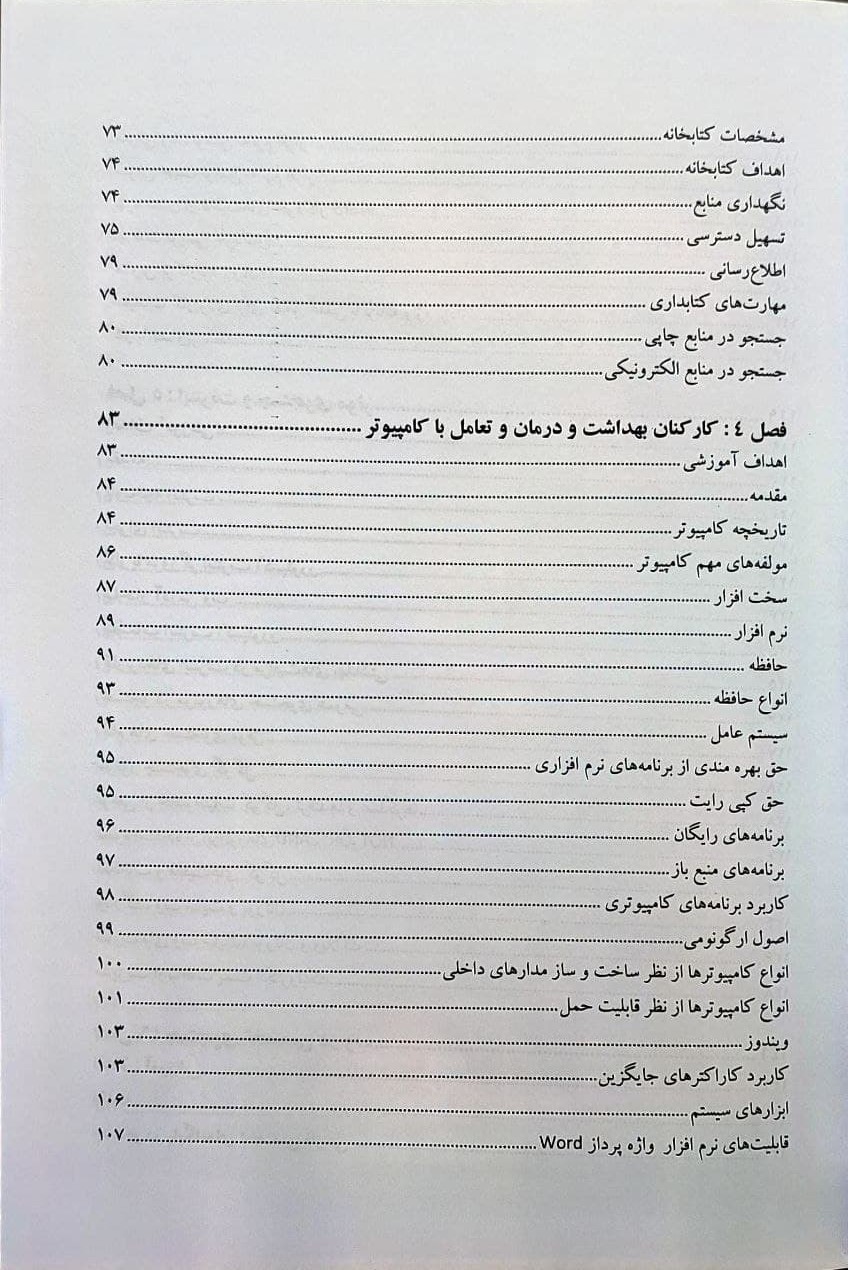 مشخصات کتابخانه ........ ۷۳
اهداف کتابخانه ........ ۷۴
نگهداری منابع ........ ۷۴
تسهیل دسترسی ........ ۷۵
اطلاع‌رسانی ........ ۷۹
مهارت‌های کتابداری ........ ۷۹
جستجو در منابع چاپی ........ ۸۰
جستجو در منابع الکترونیکی ........ ۸۰
فصل ٤: کارکنان بهداشت و درمان و تعامل با کامپیوتر ........ ۸۳
اهداف آموزشی ........ ۸۳
مقدمه ........ ۸۴
تاریخچه کامپیوتر ........ ۸۴
مولفه‌های مهم کامپیوتر ........ ۸۶
سخت افزار ........ ۸۷
نرم افزار ........ ۸۹
حافظه ........ ۹۱
انواع حافظه ........ ۹۳
سیستم عامل ........ ۹۴
حق بهره مندی از برنامه‌های نرم افزاری ........ ۹۵
حق کپی رایت ........ ۹۵
برنامه‌های رایگان ........ ۹۶
برنامه‌های منبع باز ........ ۹۷
کاربرد برنامه‌های کامپیوتری ........ ۹۸
اصول ارگونومی ........ ۹۹
انواع کامپیوترها از نظر ساخت و ساز مدارهای داخلی ........ ۱۰۰
انواع کامپیوترها از نظر قابلیت حمل ........ ۱۰۱
ویندوز ........ ۱۰۳
کاربرد کاراکترهای جایگزین ........ ۱۰۳
ابزارهای سیستم ........ ۱۰۶
قابلیت‌های نرم افزار واژه پرداز Word ........ ۱۰۷